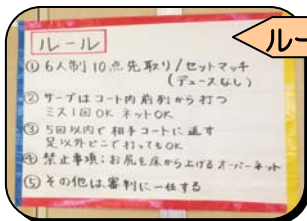 ルール
ルー
① 6人制 10点先取り/セットマッチ
(デュースなし)
② サーブはコート内前列から打つ
ミス1回OK ネットOK
③ 5回以内で相手コートに返す
足以外どこで打ってもOK
④ 禁止事項:お尻を床から上げる オーバーネット
⑤ その他は審判に一任する